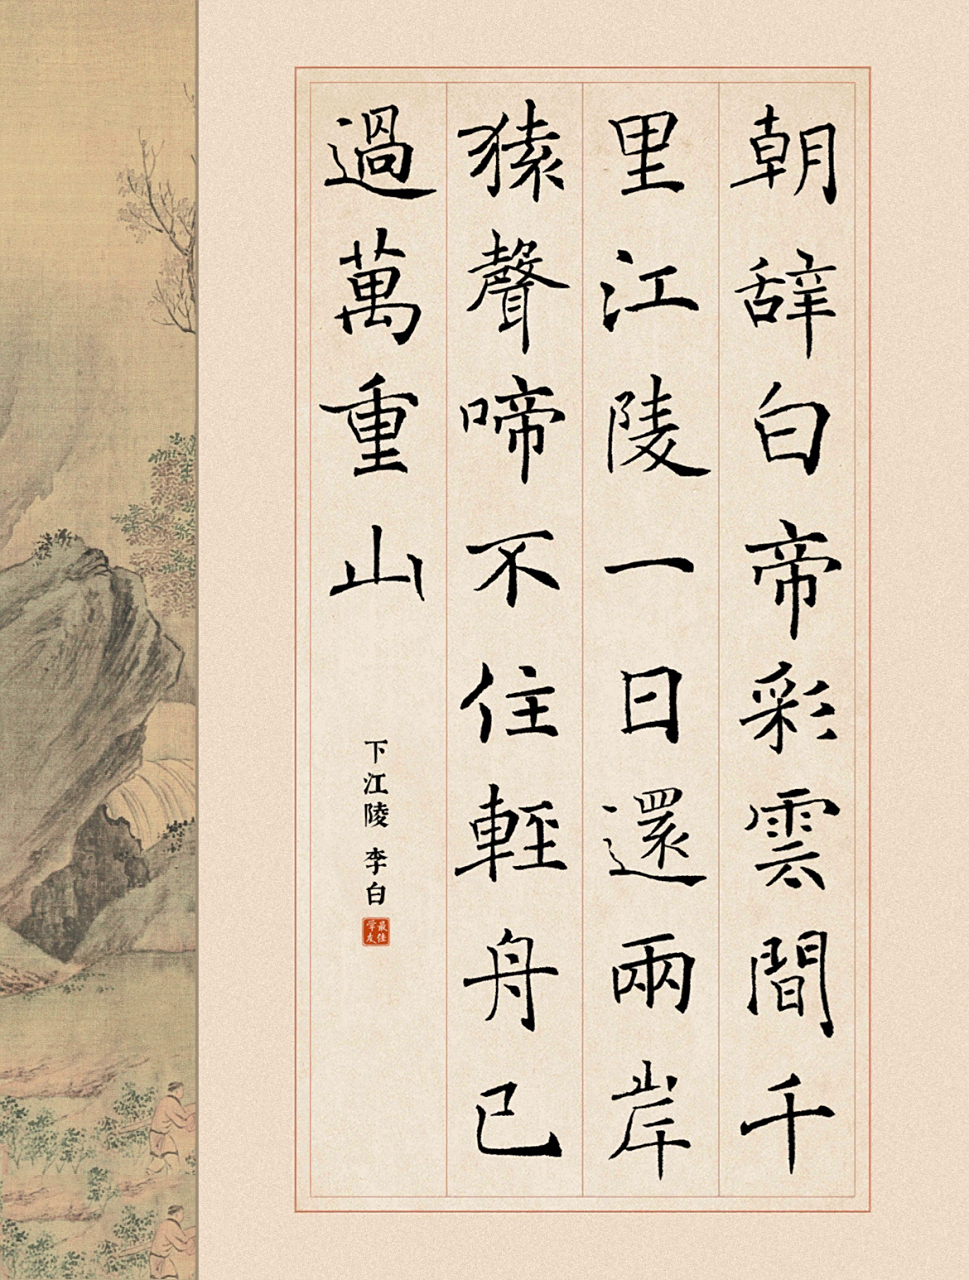 朝辭白帝彩雲間千
里江陵一日還兩岸
猿聲啼不住輕舟已
過萬重山
下江陵 李白
最佳
学友